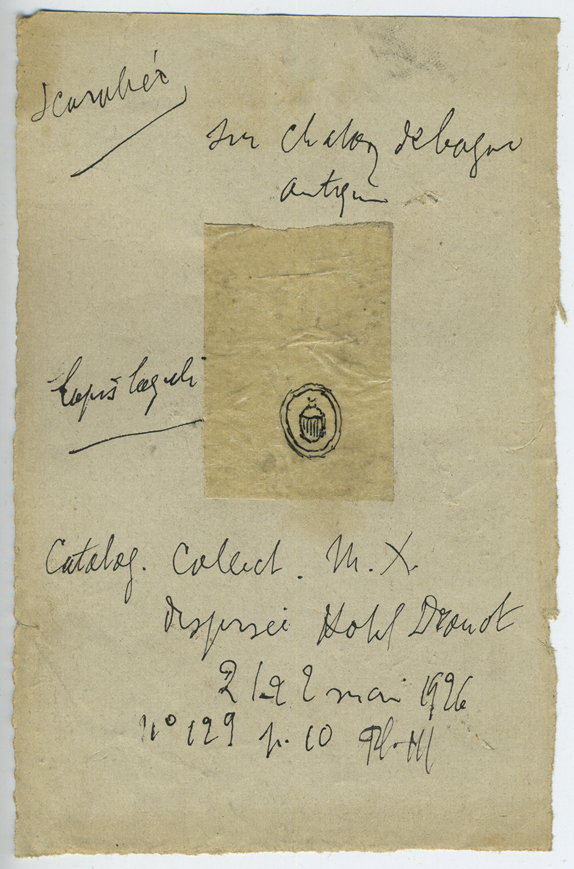 Scarabée
sur chaton de bague
antique
Lapis lazuli
Catalog. Collect. M. X.
dispersée Hotel Drouot
2 mai 1926
n° 129 p. 10 Pl. III